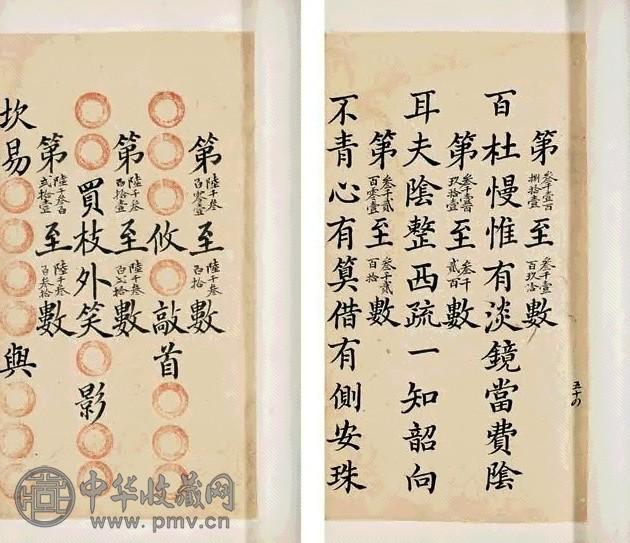 第叁千壹百捌拾壹至叁千壹百玖拾數
百杜慢惟有淡鏡當費陰
第叁千壹百玖拾壹至叁千貳百數
耳夫陰整西疏一知韶向
第叁千貳百零壹至叁千貳百拾數
不青心有算借有側安珠
第陸千叁百零壹至陸千叁百拾數
攸敲首
第陸千叁百拾壹至陸千叁百弍拾數
買枝外笑影
第陸千叁百弍拾壹至陸千叁百叁拾數
坎易與
中华收藏网
www.pmv.cn